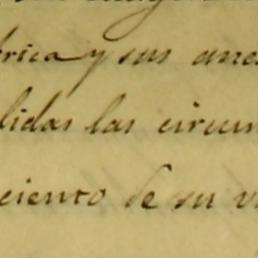 rica y sus ane
lidas las circun
ciento de su v